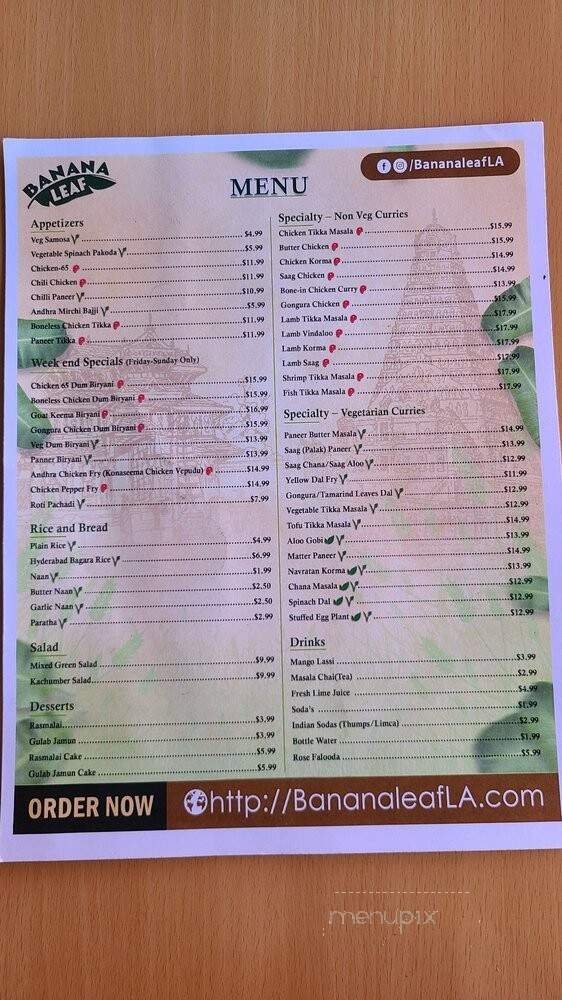 BANANA
LEAF
/BananaleafLA
MENU
Appetizers
Veg Samosa $4.99
Vegetable Spinach Pakoda $5.99
Chicken-65 $11.99
Chili Chicken $11.99
Chilli Paneer $10.99
Andhra Mirchi Bajji $5.99
Boneless Chicken Tikka $11.99
Paneer Tikka $11.99
Week end Specials (Friday-Sunday Only)
Chicken 65 Dum Biryani $15.99
Boneless Chicken Dum Biryani $15.99
Goat Keema Biryani $16.99
Gongura Chicken Dum Biryani $15.99
Veg Dum Biryani $13.99
Panner Biryani $13.99
Andhra Chicken Fry (Konaseema Chicken Vepudu) $14.99
Chicken Pepper Fry $14.99
Roti Pachadi $7.99
Rice and Bread
Plain Rice $4.99
Hyderabad Bagara Rice $6.99
Naan $1.99
Butter Naan $2.50
Garlic Naan $2.50
Paratha $2.99
Salad
Mixed Green Salad $9.99
Kachumber Salad $9.99
Desserts
Rasmalai $3.99
Gulab Jamun $3.99
Rasmalai Cake $5.99
Gulab Jamun Cake $5.99
Specialty – Non Veg Curries
Chicken Tikka Masala $15.99
Butter Chicken $15.99
Chicken Korma $14.99
Saag Chicken $14.99
Bone-in Chicken Curry $13.99
Gongura Chicken $15.99
Lamb Tikka Masala $17.99
Lamb Vindaloo $17.99
Lamb Korma $17.99
Lamb Saag $17.99
Shrimp Tikka Masala $17.99
Fish Tikka Masala $17.99
Specialty – Vegetarian Curries
Paneer Butter Masala $14.99
Saag (Palak) Paneer $13.99
Saag Chana/Saag Aloo $12.99
Yellow Dal Fry $11.99
Gongura/Tamarind Leaves Dal $12.99
Vegetable Tikka Masala $12.99
Tofu Tikka Masala $14.99
Aloo Gobi $13.99
Matter Paneer $14.99
Navratan Korma $13.99
Chana Masala $12.99
Spinach Dal $12.99
Stuffed Egg Plant $12.99
Drinks
Mango Lassi $3.99
Masala Chai(Tea) $2.99
Fresh Lime Juice $4.99
Soda's $1.99
Indian Sodas (Thumps/Limca) $2.99
Bottle Water $1.99
Rose Falooda $5.99
ORDER NOW
http://BananaleafLA.com
menupix